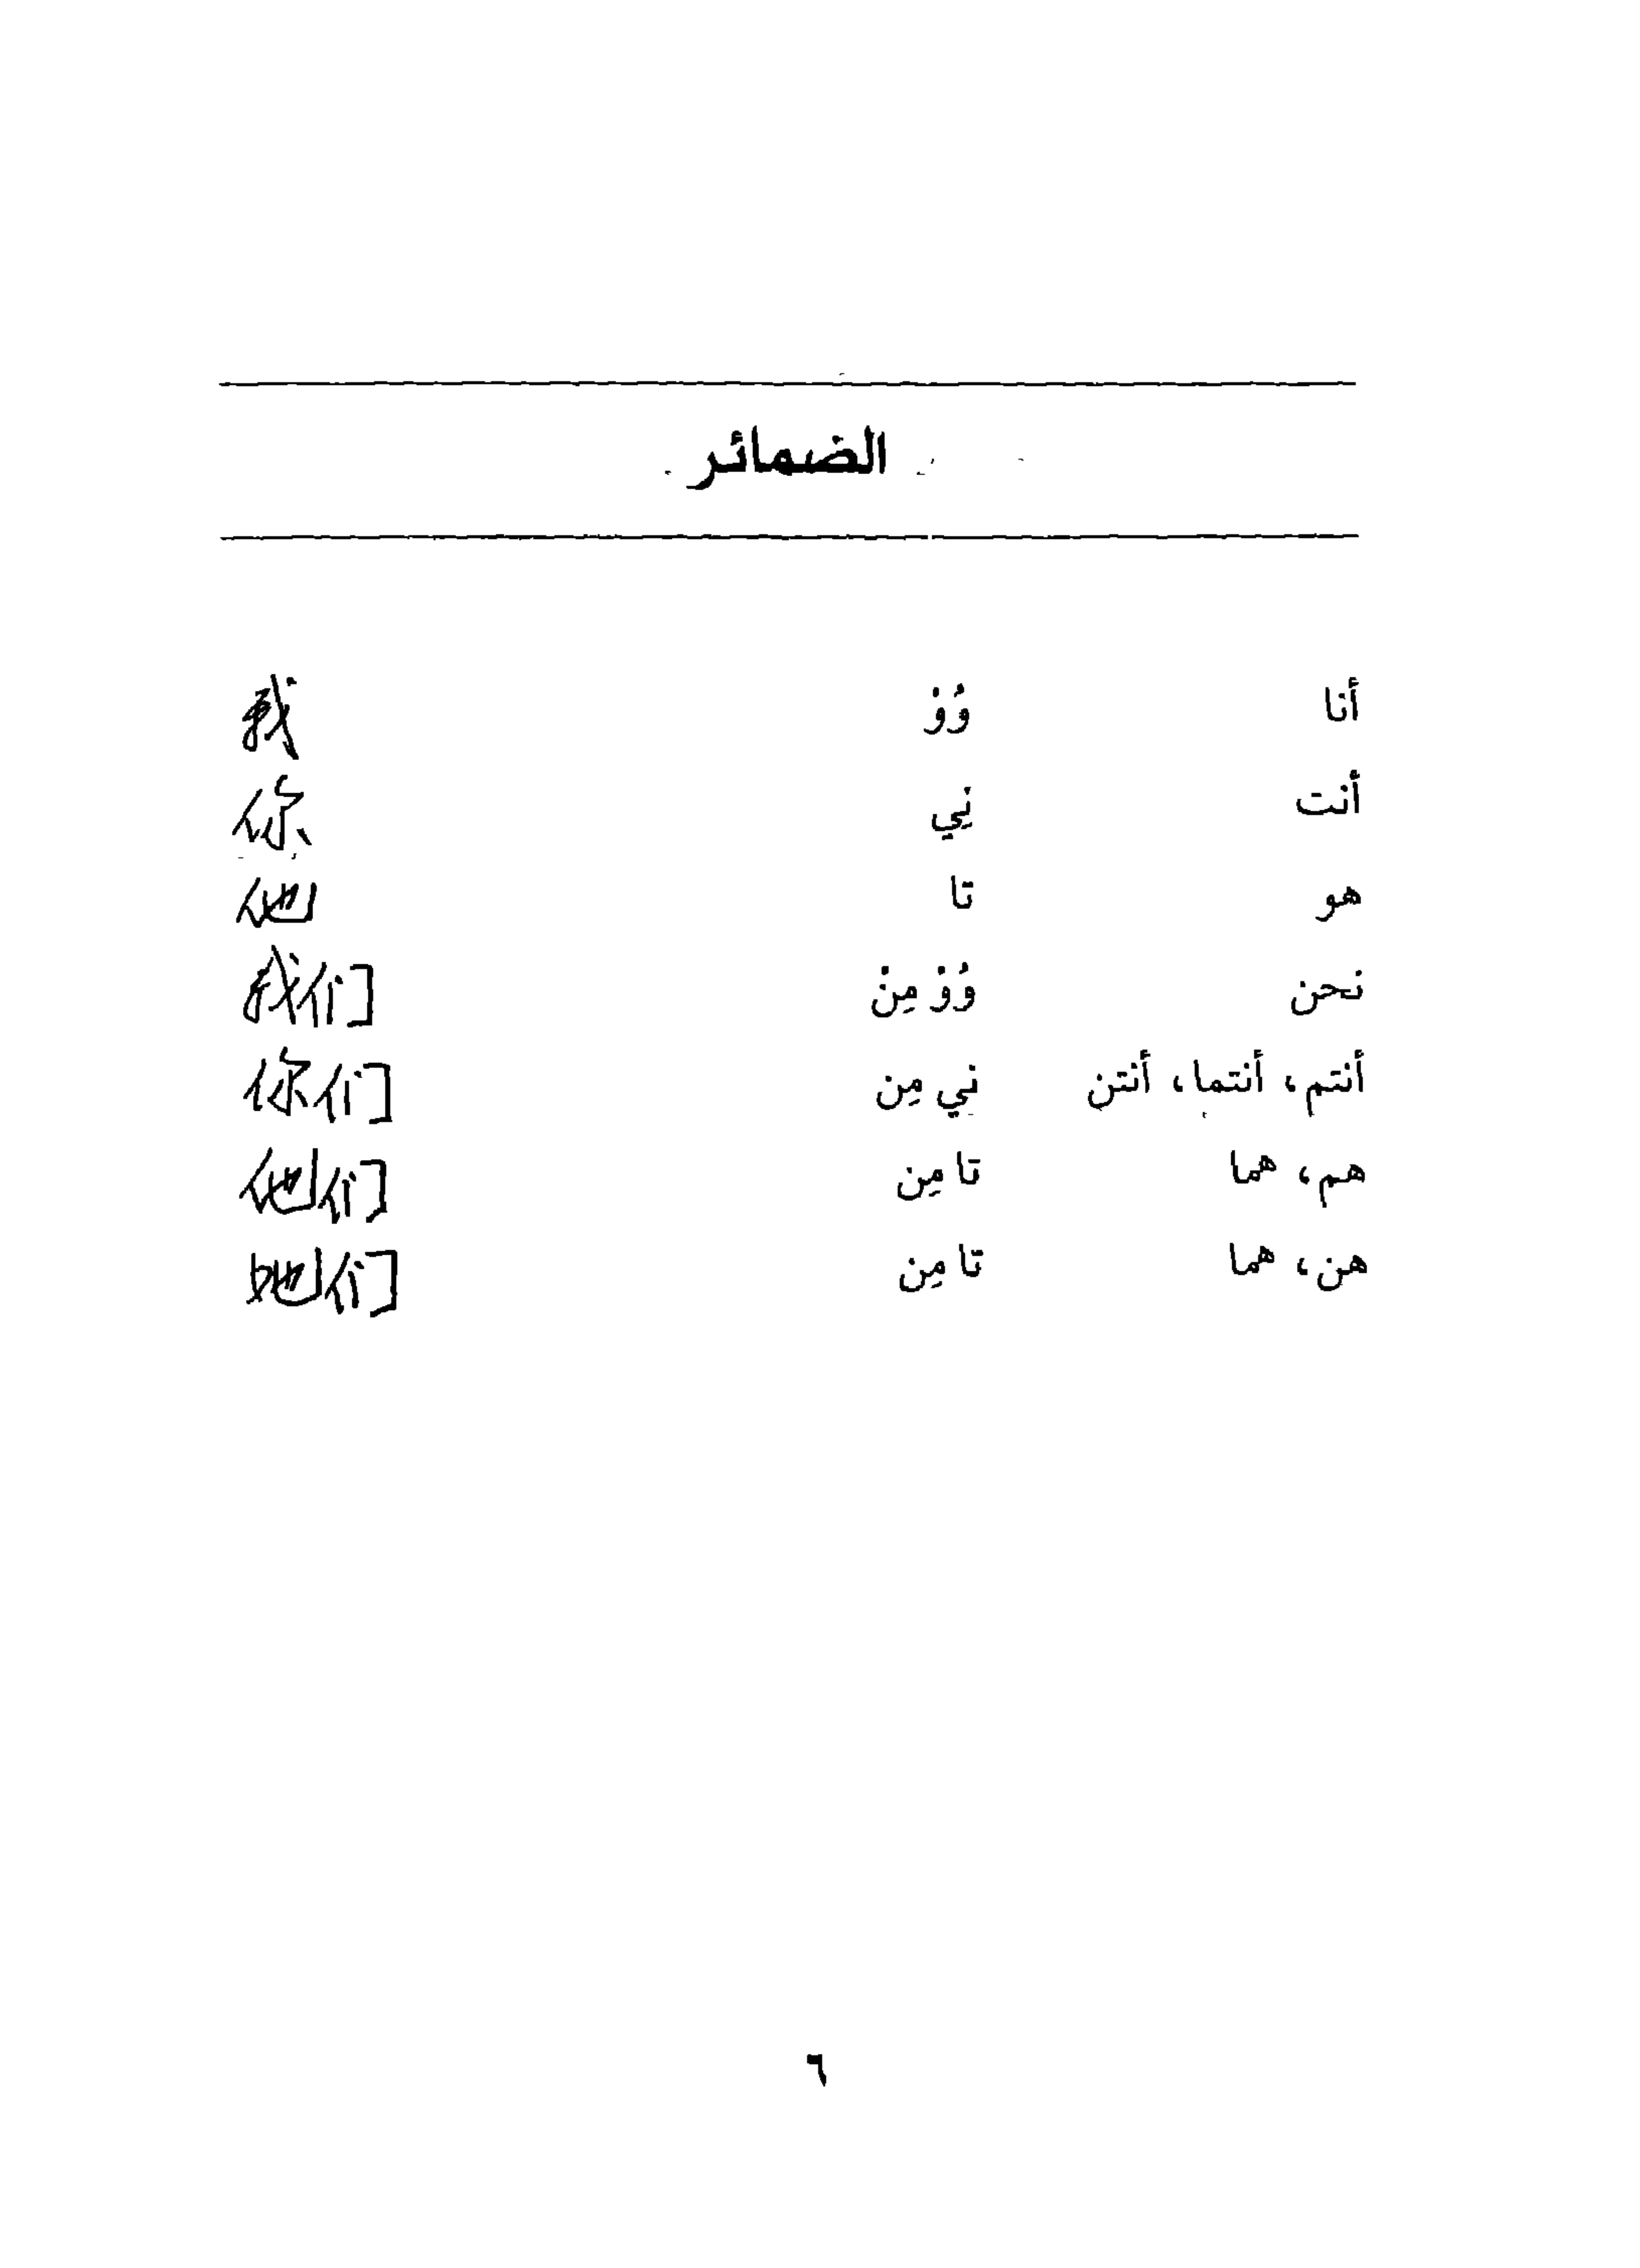 الضمائر
أنا وُوْ 我
أنت نِي 你
هو تا 他
نحن وُوْ مِنْ 我们
أنتم، أنتما، أنتن نِي مِن 你们
هم، هما تا مِن 他们
هن، هما تا مِن 她们
٦